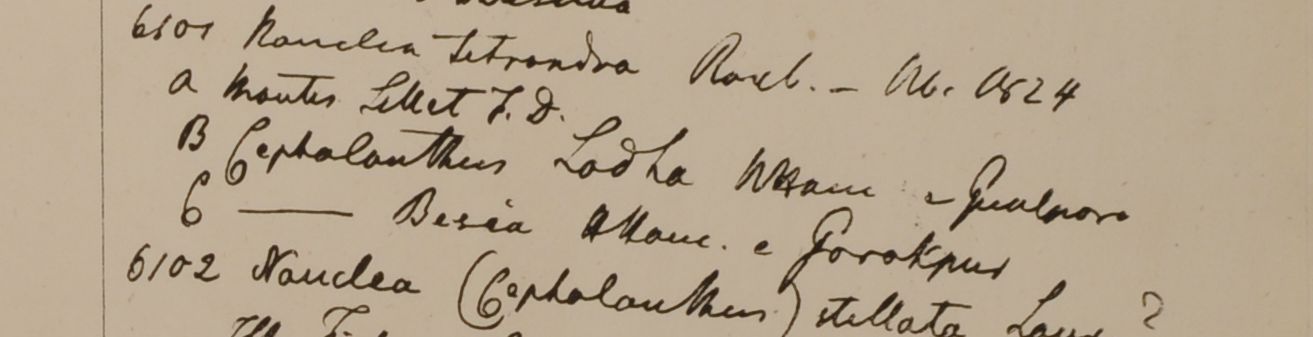 6101 Nauclea tetrandra Roxb. –
A Montes Sillet F. D.
B Cephalanthus Lodha HHam e Gualpara
C —— Besia HHam. e Gorakpur
6102 Nauclea (Cephalanthus) stellata ?